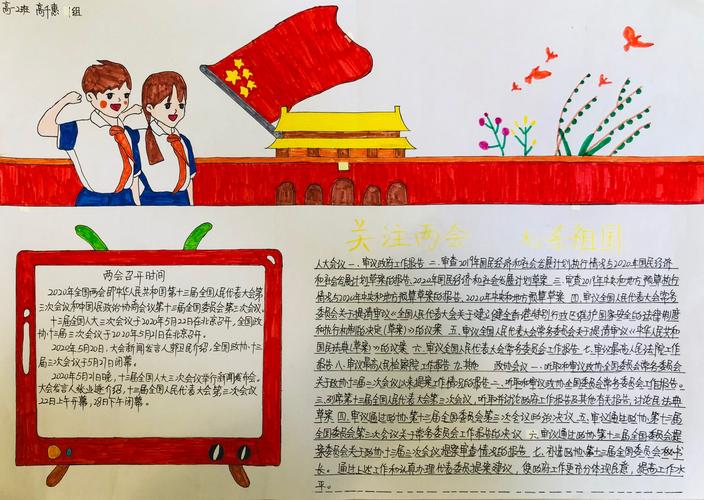 高一2班 高千惠 组
关注两会 祖国
两会召开时间
2020年全国两会即中华人民共和国第十三届全国人民代表大会第
三次会议和中国人民政治协商会议第十三届全国委员会第三次会议。
十三届全国人大三次会议于2020年5月22日在北京召开,全国政
协十三届三次会议于2020年5月21日在北京召开。
2020年5月20日,大会新闻发言人郭卫民介绍,全国政协十三
届三次会议于5月27日闭幕。
2020年5月21日晚,十三届全国人大三次会议举行新闻发布会。
大会发言人张业遂介绍,十三届全国人民代表大会第三次会议
22日上午开幕,28日下午闭幕。
人大会议 一、审议政府工作报告 二、审查2019年国民经济和社会发展计划执行情况与2020年国民经济
和社会发展计划草案的报告、2020年国民经济和社会发展计划草案 三、审查2019年中央和地方预算执行
情况与2020年中央和地方预算草案的报告、2020年中央和地方预算草案 四、审议全国人民代表大会常务
委员会关于提请审议《全国人民代表大会关于建立健全香港特别行政区维护国家安全的法律制度
和执行机制的决定(草案)》的议案 五、审议全国人民代表大会常务委员会关于提请审议《中华人民共和
国民法典(草案)》的议案 六、审议全国人民代表大会常务委员会工作报告 七、审议最高人民法院工作
报告 八、审议最高人民检察院工作报告 九、其他 政协会议 一、听取和审议政协全国委员会常务委员会
关于政协十三届二次会议以来提案工作情况的报告
三、列席第十三届全国人民代表大会第三次会议,听取并讨论政府工作报告及其他有关报告,讨论民法典
草案 四、审议通过政协第十三届全国委员会第三次会议政治决议 五、审议通过政协第十三届
全国委员会第三次会议关于常务委员会工作报告的决议 六、审议通过政协第十三届全国委员会提案
委员会关于政协十三届三次会议提案审查情况的报告 七、
长。通过上述工作和认真办理代表委员提案建议,使政府工作更充分体现民意,提高工作水
平。